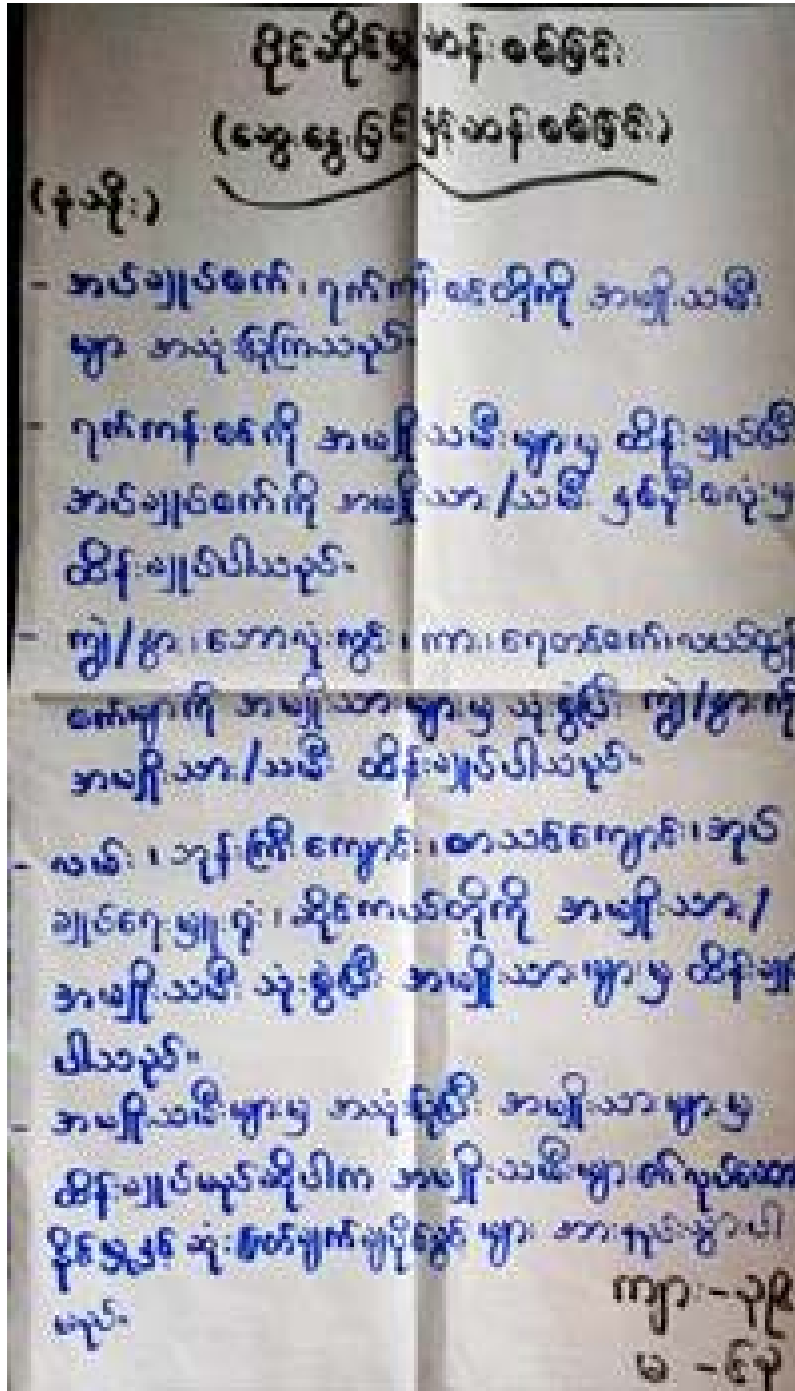 ပိုင်ဆိုင်မှုဆန်းစစ်ခြင်း
(ဆွေးနွေးခြင်းနှင့်ဆန်းစစ်ခြင်း)
(နံသိုး)
- အပ်ချုပ်စက်၊ ရက်ကန်းစင်တို့ကို အမျိုးသမီး
များ အသုံးပြုကြသည်။
- ရက်ကန်းစင်ကို အမျိုးသမီးများမှ ထိန်းချုပ်ပြီး
အပ်ချုပ်စက်ကို အမျိုးသား/သမီး နှစ်ဦးစလုံးမှ
ထိန်းချုပ်ပါသည်။
- ကျွဲ/နွား၊ ဘောလုံးကွင်း၊ ကား၊ ရေတင်စက်၊ လယ်ထွန်
စက်များကို အမျိုးသားများမှ သုံးစွဲပြီး ကျွဲ/နွားကို
အမျိုးသား/သမီး ထိန်းချုပ်ပါသည်။
- လမ်း၊ ဘုန်းကြီးကျောင်း၊ စာသင်ကျောင်း၊ အုပ်
ချုပ်ရေးမှူးရုံး၊ ဆိုင်ကယ်တို့ကို အမျိုးသား/
အမျိုးသမီး သုံးစွဲပြီး အမျိုးသားများမှ ထိန်းချုပ်
ပါသည်။
- အမျိုးသမီးများမှ အသုံးပြုပြီး အမျိုးသားများမှ
ထိန်းချုပ်မည်ဆိုပါက အမျိုးသမီးများ၏လုပ်ဆောင်
နိုင်မှုနှင့် ဆုံးဖြတ်ချက်ချပိုင်ခွင့် များ အားနည်းသွားပါ
မည်။
ကျား-
မ -